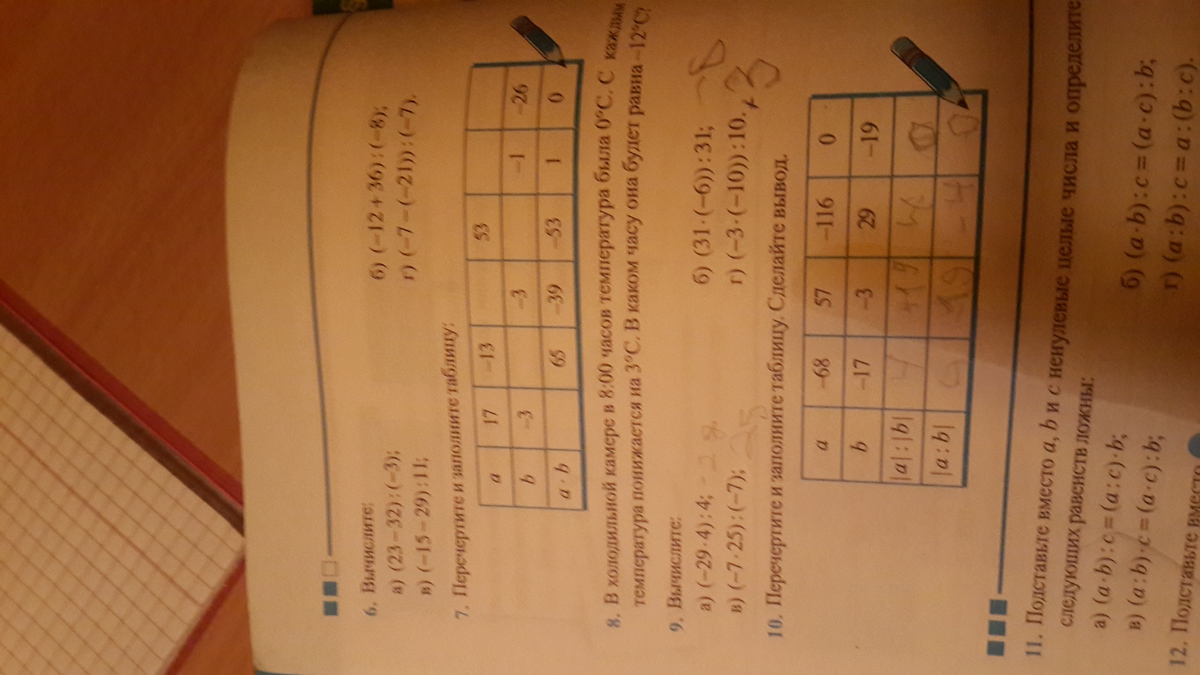 6. Вычислите:
а) (23 – 32) : (–3); б) (–12 + 36) : (–8);
в) (–15 – 29) : 11; г) (–7 – (–21)) : (–7).
7. Перечертите и заполните таблицу:
a 17 –13 53
b –3 –3 –1 –26
a · b 65 –39 –53 1 0
8. В холодильной камере в 8:00 часов температура была 0°С. С каждым
температура понижается на 3°С. В каком часу она будет равна –12°С?
9. Вычислите:
а) (–29 · 4) : 4; б) (31 · (–6)) : 31;
в) (–7 · 25) : (–7); 25 г) (–3 · (–10)) : 10. +3
10. Перечертите и заполните таблицу. Сделайте вывод.
a –68 57 –116 0
b –17 –3 29 –19
|a| : |b| 4 +19 0
|a : b| 4 19 –4 0
11. Подставьте вместо a, b и c ненулевые целые числа и определите
следующих равенств ложны:
а) (a · b) : c = (a : c) · b; б) (a · b) : c = (a · c) : b;
в) (a : b) · c = (a · c) : b; г) (a : b) : c = a : (b : c).
12. Подставьте вместо